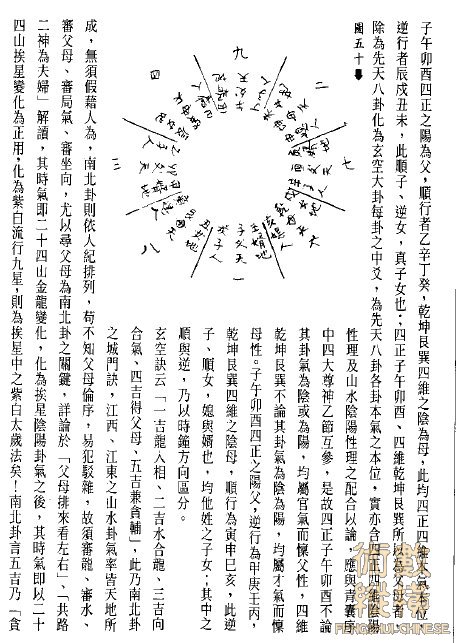 子午卯酉四正之陽為父，順行者乙辛丁癸，乾坤艮巽四維之陰為母，此均四正四維本氣本位，
逆行者辰戌丑未，此順子、逆女，真子女也；四正子午卯酉、四維乾坤艮巽所以為父母者，
除為先天八卦化為玄空大卦每卦之中爻，為先天八卦各卦本氣之本位，實亦含四正四維陰陽
圖五十
九
二
七
六
一
八
三
四
性理及山水陰陽性理之配合以論，應與青囊序
中四大尊神乙節互參，是故四正子午卯酉不論
其卦氣為陰或為陽，均屬官氣而懷父性，四維
乾坤艮巽不論其卦氣為陰為陽，均屬才氣而懷
母性。子午卯酉四正之陽父，逆行為甲庚壬丙，
乾坤艮巽四維之陰母，順行為寅申巳亥，此逆
子、順女，媳與婿也，均他姓之子女；其中之
順與逆，乃以時鐘方向區分。
玄空訣云「一吉龍入相、二吉水合龍、三吉向
合氣、四吉得父母、五吉兼貪輔」，此乃南北卦
之城門訣，江西、江東之山水卦氣率皆天地所
成，無須假藉人為，南北卦則依人紀排列，苟不知父母倫序，易犯駁雜，故須審龍、審水、
審父母、審局氣、審坐向，尤以尋父母為南北卦之關鍵，詳論於「父母排來看左右」、「共路
二神為夫婦」解讀，其時氣即二十四山金龍變化，化為挨星陰陽卦氣之後，其時氣即以二十
四山挨星變化為正用，化為紫白流行九星，則為挨星中之紫白太歲法矣！南北卦言五吉乃「貪